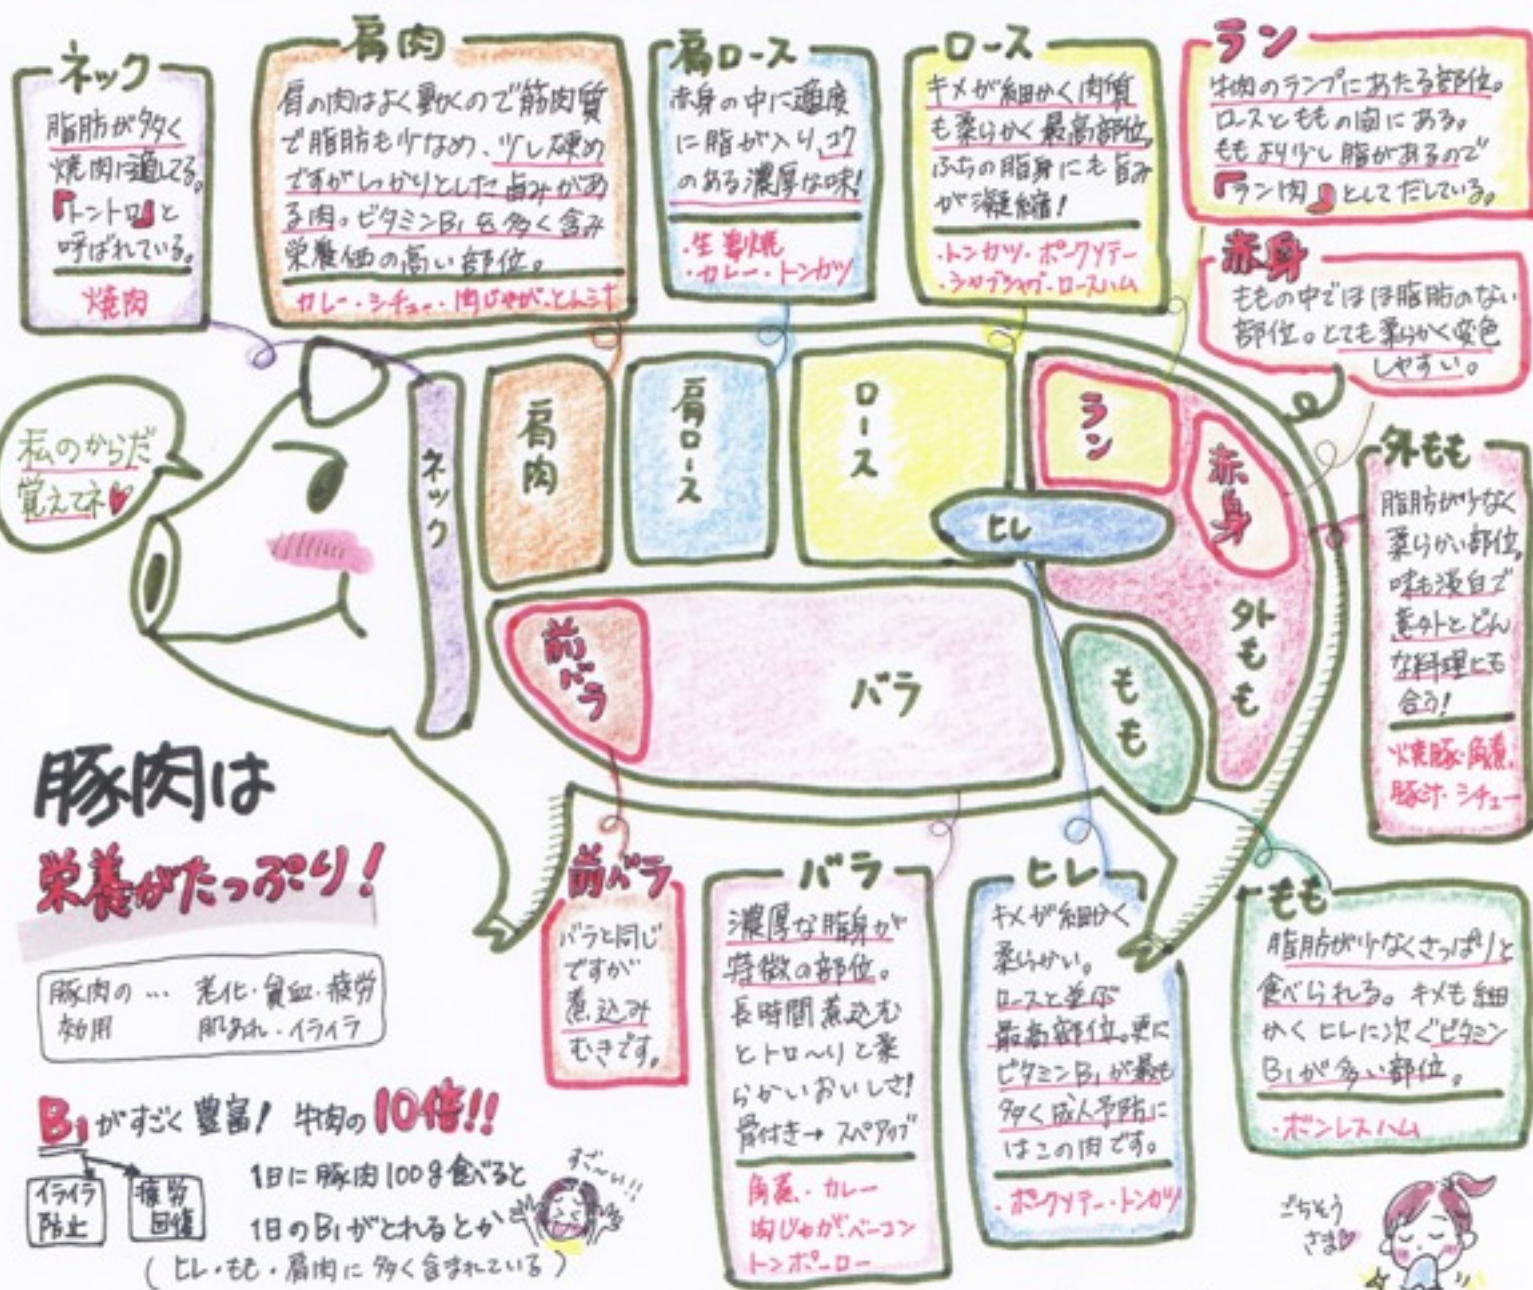 ネック
脂肪が多く
焼肉に適してる。
『トントロ』と
呼ばれている。
焼肉
肩肉
肩の肉はよく動くので筋肉質
で脂肪も少なめ、少し硬め
ですがしっかりとした旨みがあ
る肉。ビタミンB₁を多く含み
栄養価の高い部位。
カレー・シチュー・肉じゃが・とん汁
肩ロース
赤身の中に適度
に脂が入り、コク
のある濃厚な味!
・生姜焼
・カレー・トンカツ
ロース
キメが細かく肉質
も柔らかく最高部位。
ふちの脂身にも旨み
が凝縮!
・トンカツ・ポークソテー
・シャブシャブ・ロースハム
ラン
牛肉のランプにあたる部位。
ロースとももの間にある。
ももより少し脂があるので
『ラン肉』としてだしている。
赤身
ももの中でほぼ脂肪のない
部位。とても柔らかく変色
しやすい。
外もも
脂肪が少なく
柔らかい部位。
味も淡白で
意外とどん
な料理にも
合う!
焼豚・角煮・
豚汁・シチュー
私のからだ
覚えてネ♥
ネック
肩肉
肩ロース
ロース
ラン
赤身
ヒレ
外もも
前バラ
バラ
もも
豚肉は
栄養がたっぷり!
豚肉の… 老化・貧血・疲労
効用 肌あれ・イライラ
B₁がすごく豊富! 牛肉の10倍!!
イライラ
防止
疲労
回復
1日に豚肉100g食べると
1日のB₁がとれるとか
(ヒレ・もも・肩肉に多く含まれている)
すご〜い!!
前バラ
バラと同じ
ですが
煮込み
むきです。
バラ
濃厚な脂身が
特徴の部位。
長時間煮込む
とトロ〜リと柔
らかいおいしさ!
骨付き→スペアリブ
角煮・カレー
肉じゃが・ベーコン
トンポーロー
ヒレ
キメが細かく
柔らかい。
ロースと並ぶ
最高部位。更に
ビタミンB₁が最も
多く成人予防に
はこの肉です。
・ポークソテー・トンカツ
もも
脂肪が少なくさっぱりと
食べられる。キメも細
かくヒレに次ぐビタミン
B₁が多い部位。
・ボンレスハム
ごちそう
さま♡